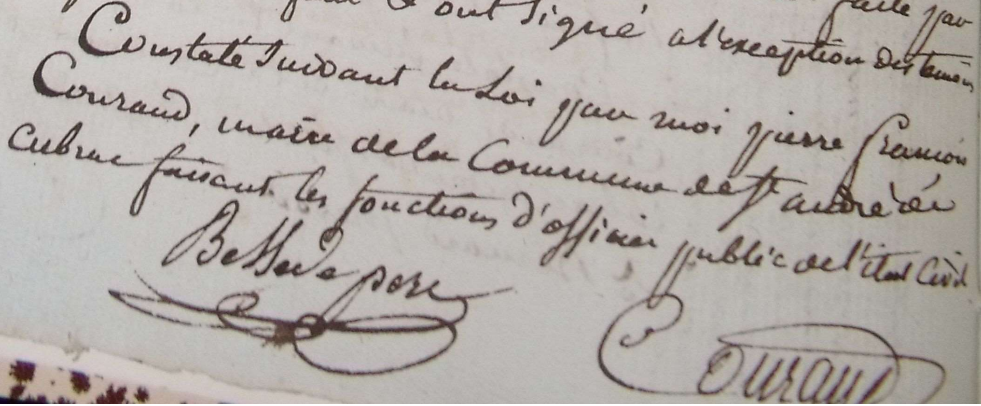 faite par
et ont signé a l'exception des temoins
Constaté Suivant la Loi par moi pierre
Couraud, maire de la Commune de St andré de
cubzac faisant les fonctions d'officier public de l'état Civil
pere
Couraud